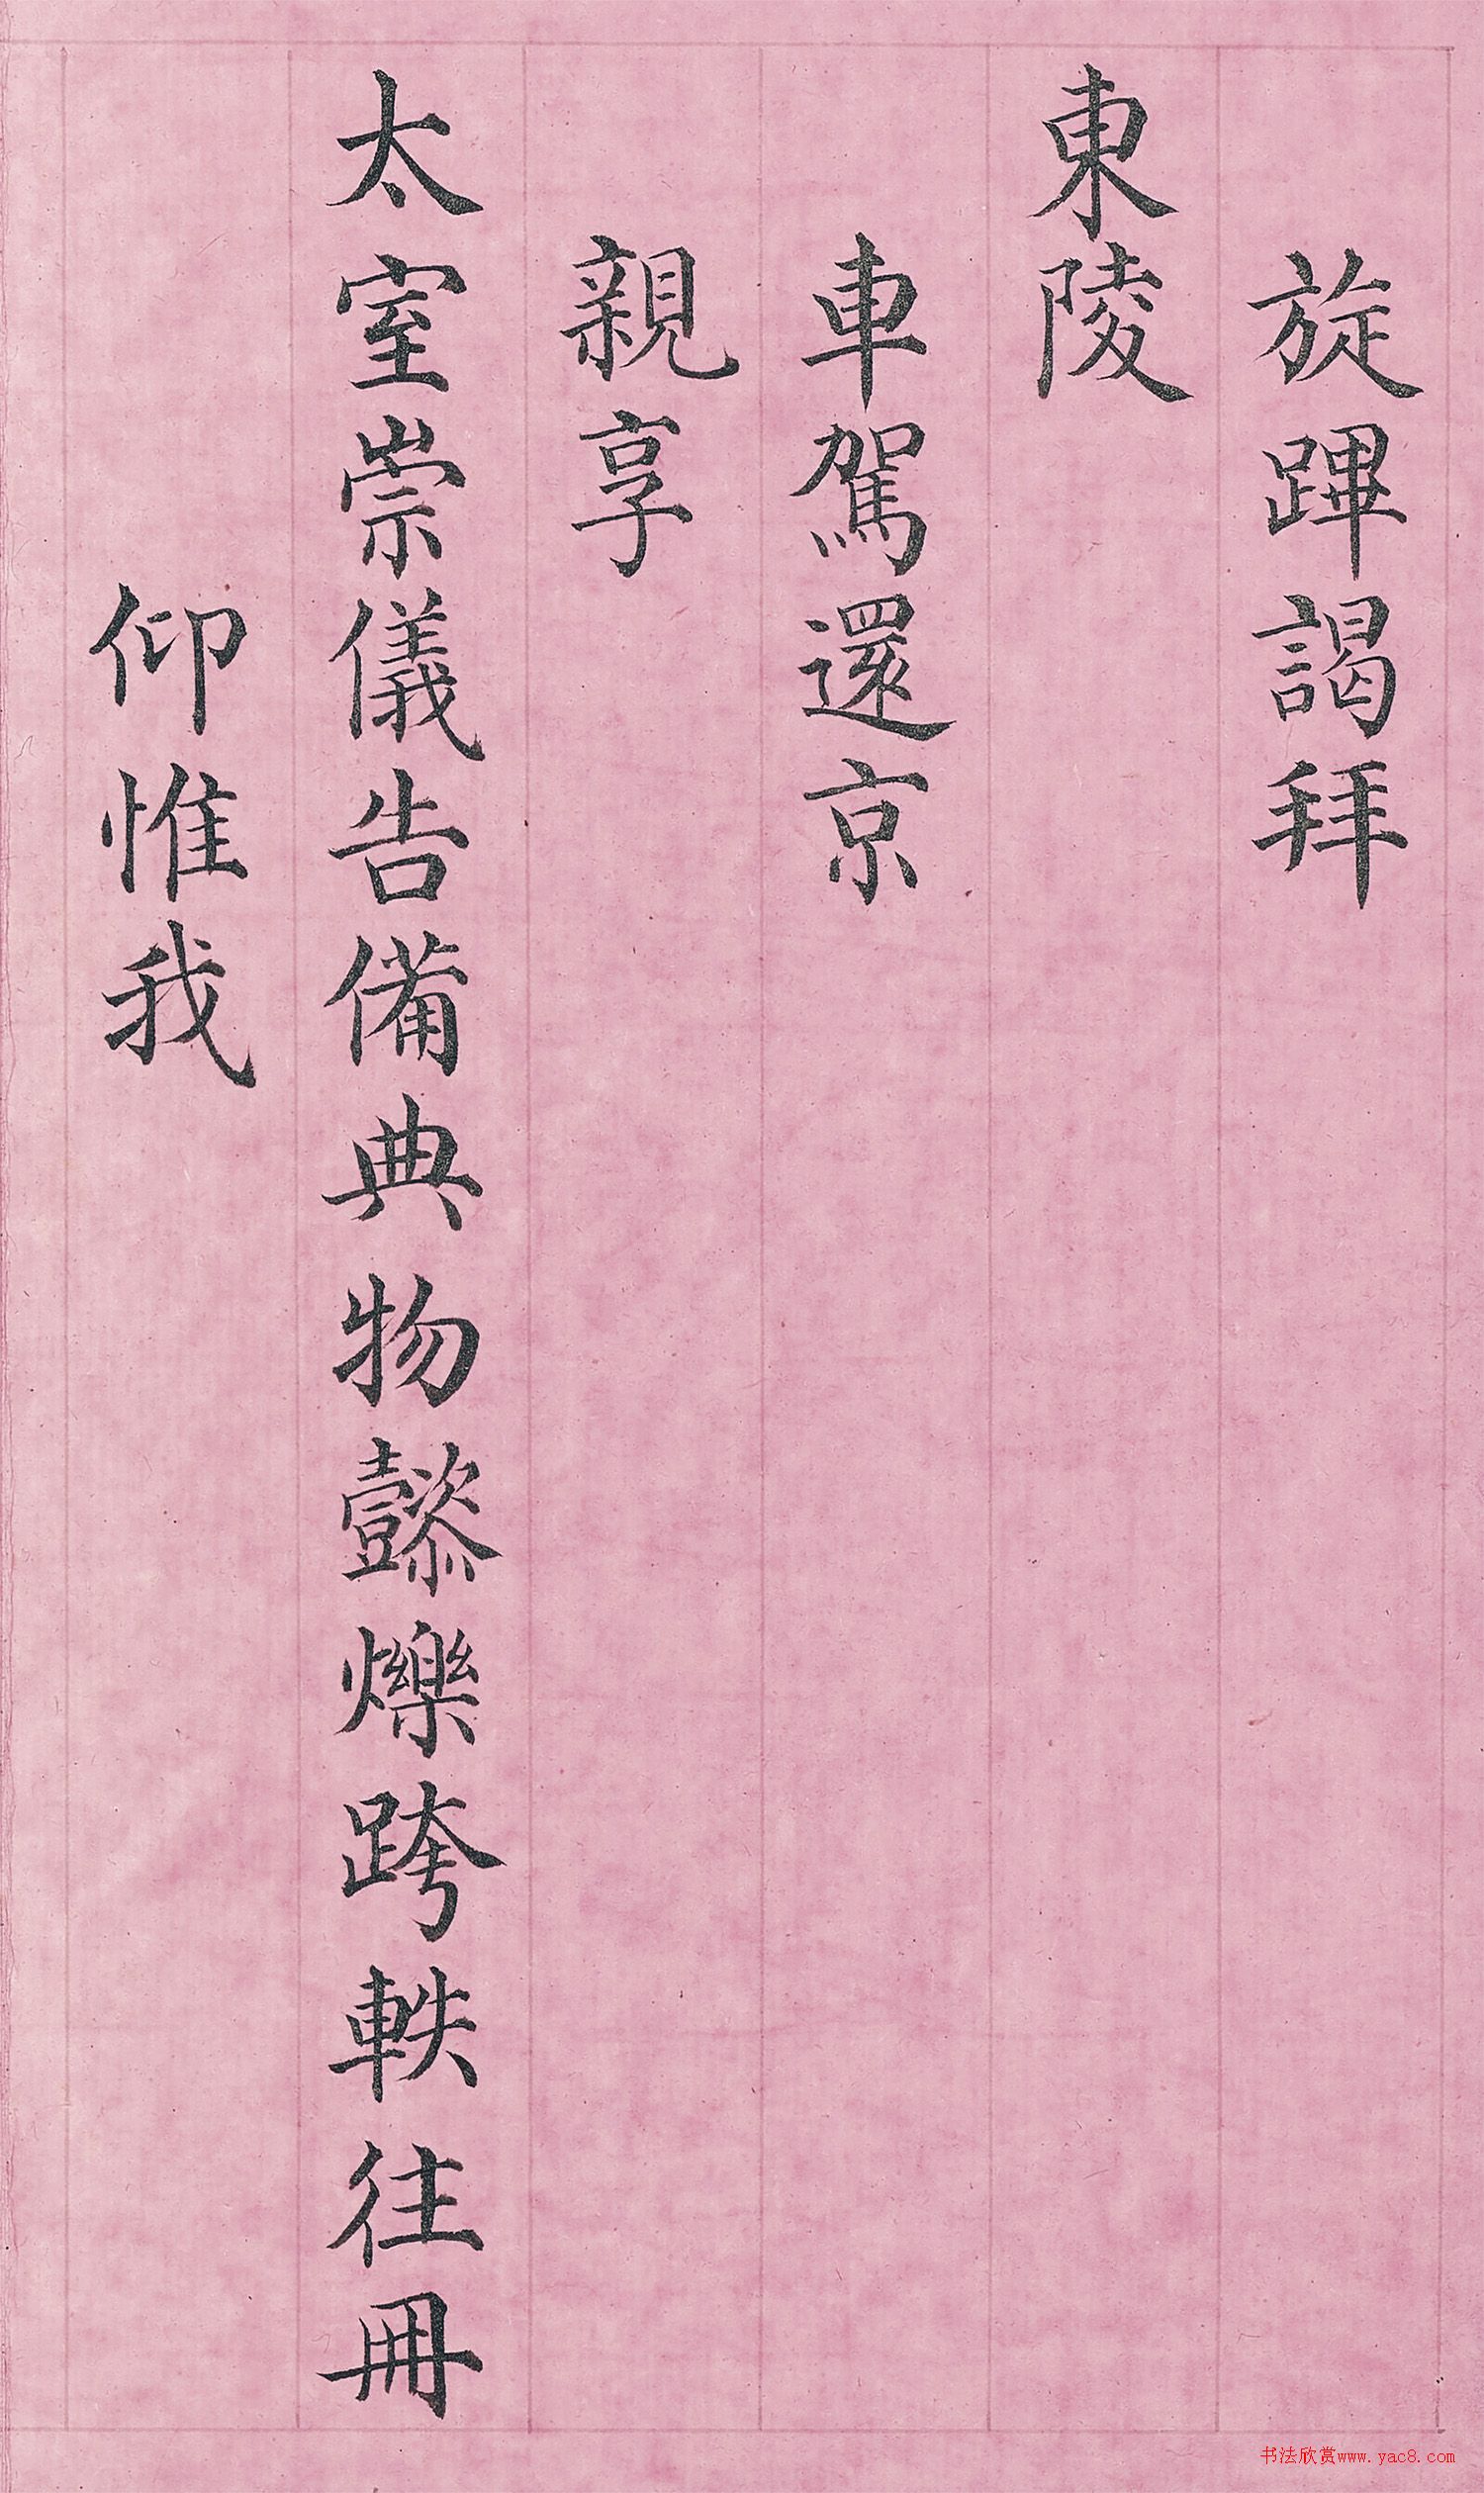 旋蹕謁拜
東陵
車駕還京
親享
太室崇儀告備典物懿爍跨軼往冊
仰惟我
书法欣赏www.yac8.com